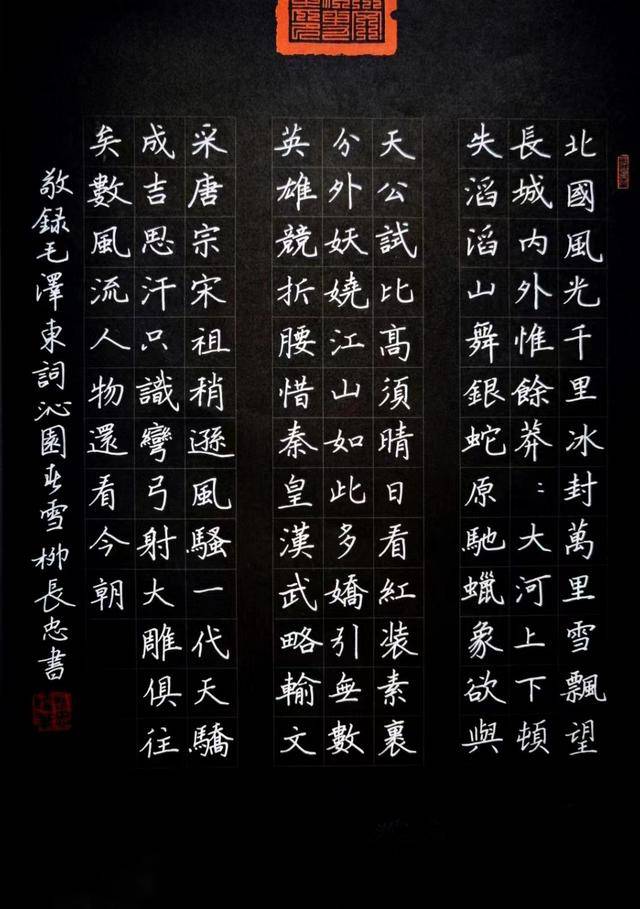 北國風光千里冰封萬里雪飄望
長城内外惟餘莽〻大河上下頓
失滔滔山舞銀蛇原馳蠟象欲與
天公試比高須晴日看紅装素裹
分外妖嬈江山如此多嬌引無數
英雄競折腰惜秦皇漢武略輸文
采唐宗宋祖稍遜風騷一代天驕
成吉思汗只識彎弓射大雕俱往
矣數風流人物還看今朝
敬録毛澤東詞沁園春雪 柳長忠書